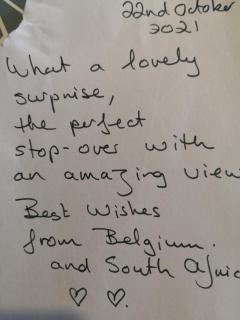 22nd October
2021
What a lovely
surprise,
the perfect
stop-over with
an amazing view
Best Wishes
from Belgium.
and South Afric
♡ ♡.